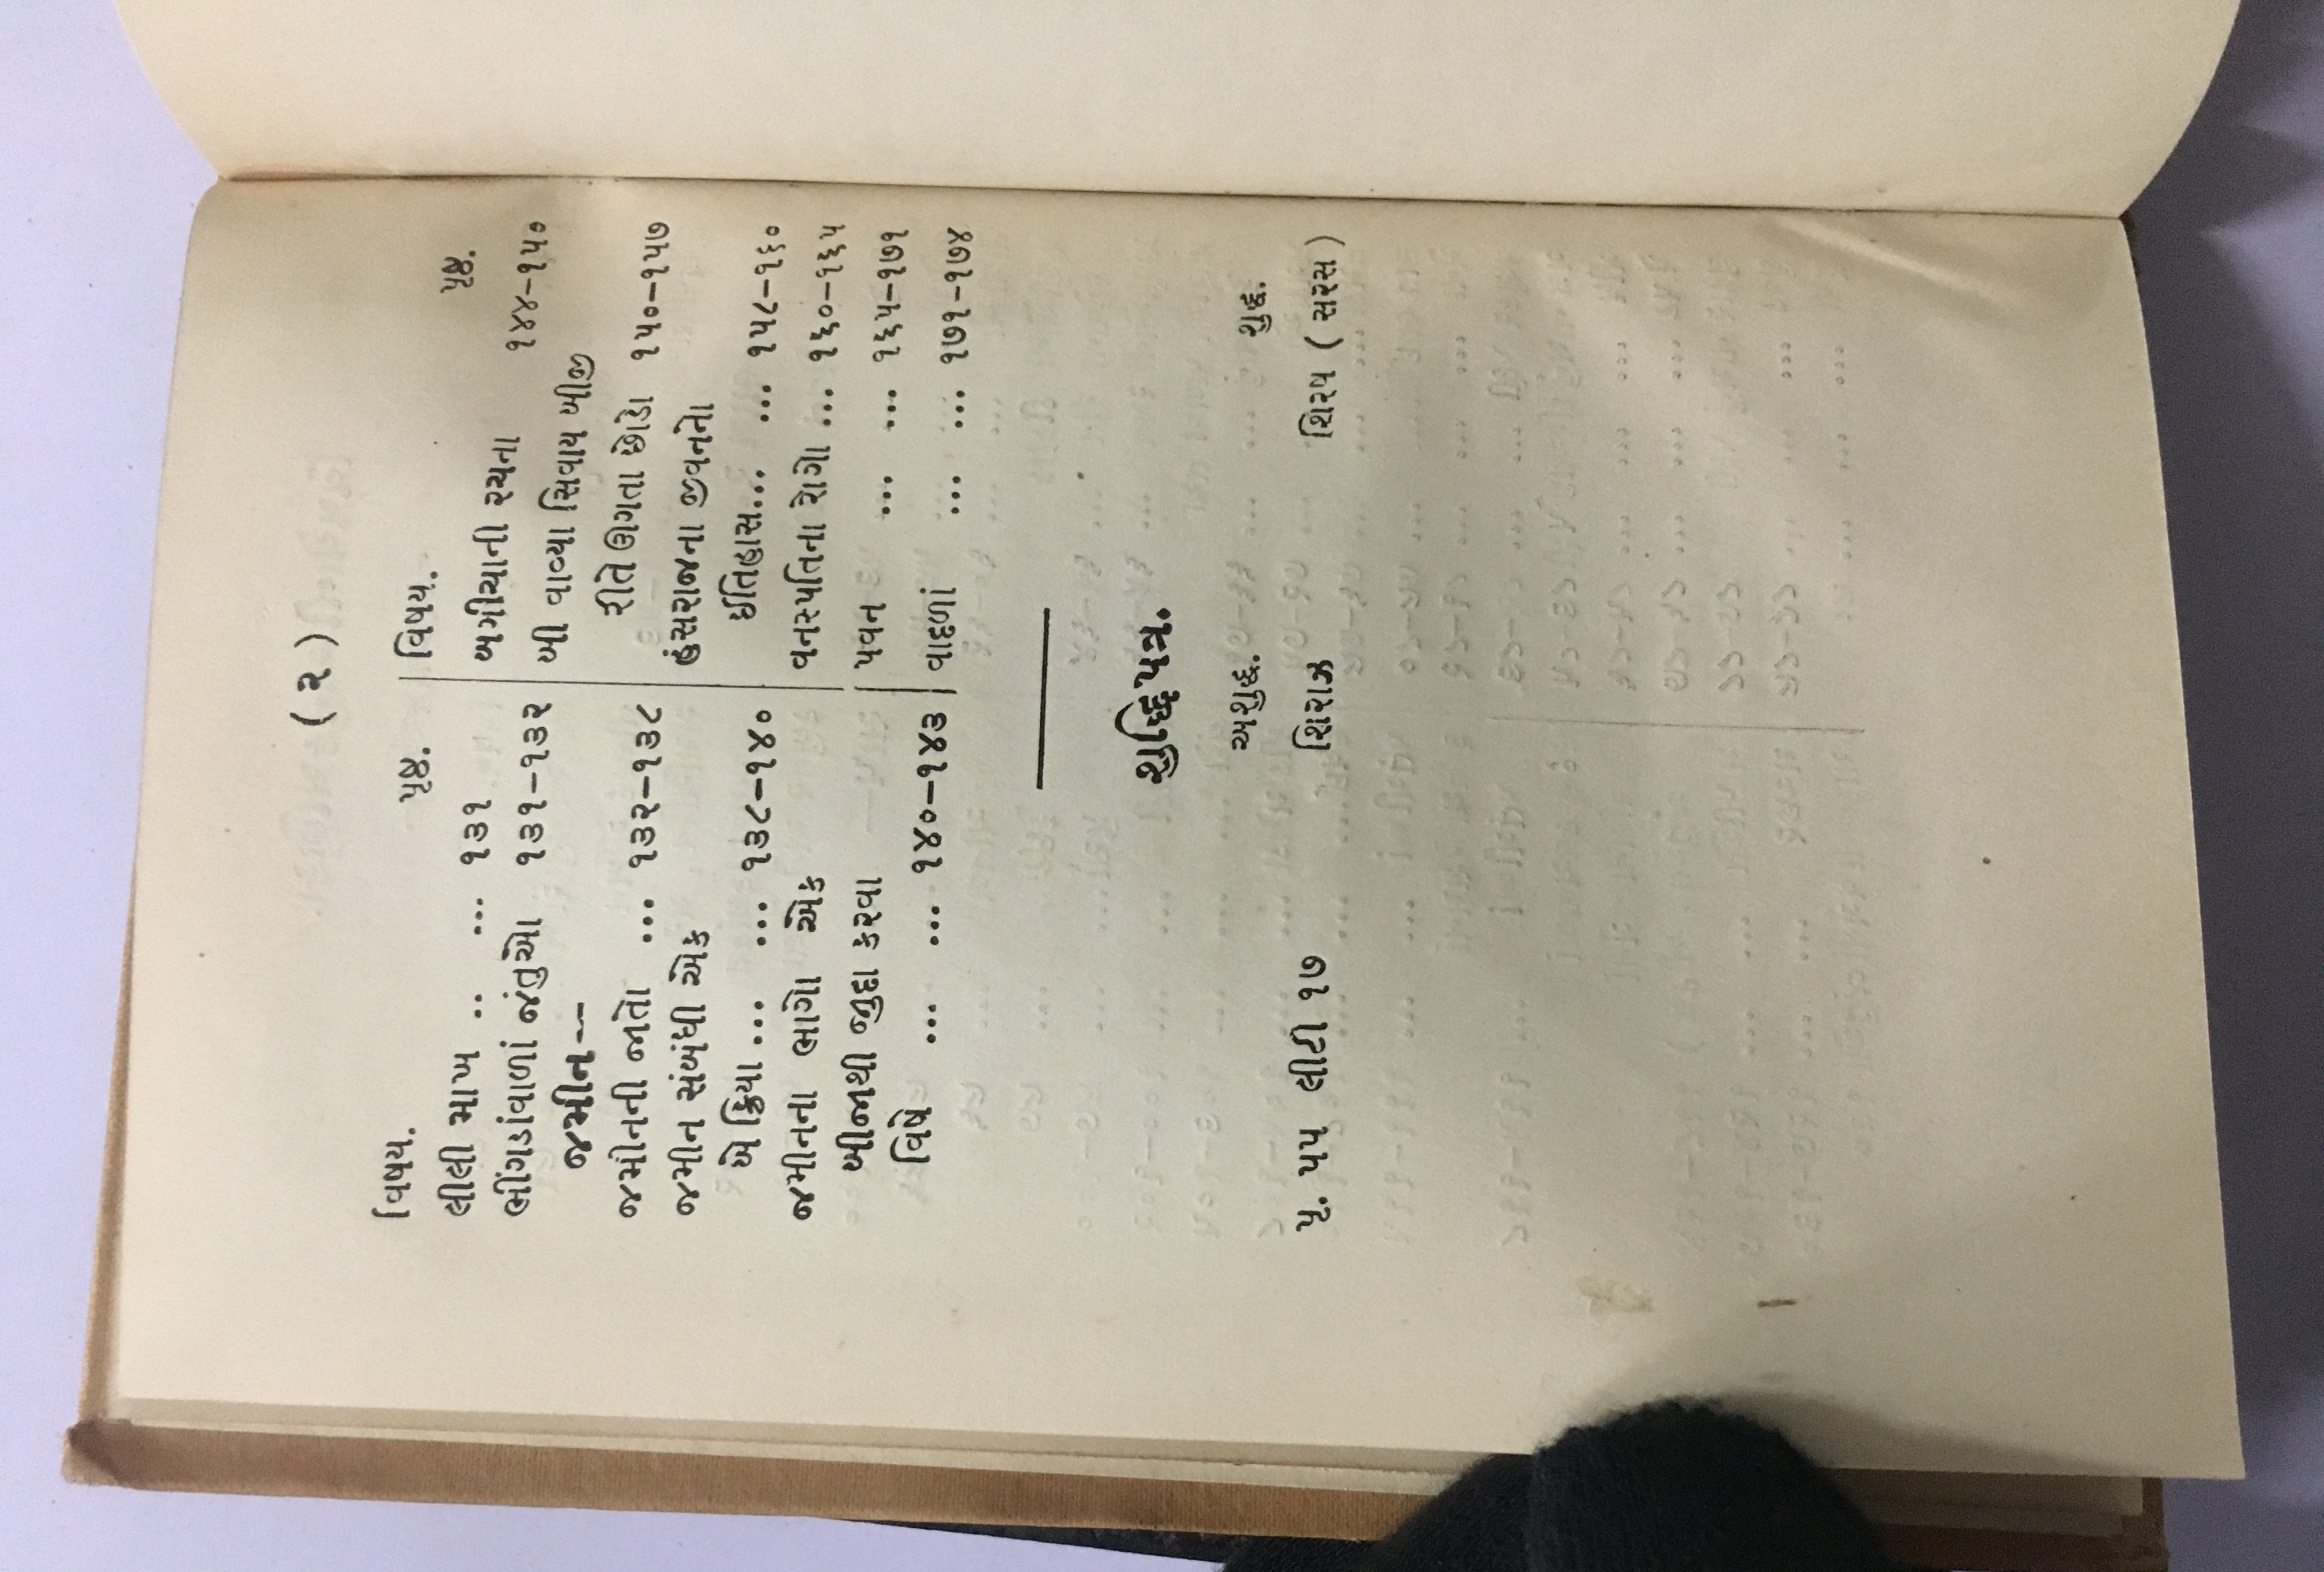 ( ૨ )
વિષય. પૃષ્ઠ.
લીલી માખ .. ... ૧૩૧
ભીંગડાંવાળાં જંતુઓ ૧૩૧-૧૩૨
જમીન—
જમીનની જાતો ... ૧૩૨-૧૩૮
જમીન સંબંધી એક
બે ક્રિયા ... ... ૧૩૮-૧૪૦
જમીનના ભાગો એક
બીજાથી જુદા કરવા
વિષે ... ... ૧૪૦-૧૪૩
વિષય. પૃષ્ઠ.
બગીચાની રચના ૧૪૪-૧૫૦
બી વાવ્યા સિવાય બીજી
રીતે ઊગતા છોડો ૧૫૦-૧૫૭
હંસરાજના જીવનનો
ઇતિહાસ... ... ૧૫૮-૧૬૦
વનસ્પતિના રોગો ... ૧૬૦-૧૬૫
પવન ... ... ૧૬૫-૧૭૧
વાદળાં ... ... ૧૭૧-૧૭૪
શુદ્ધિપત્ર.
અશુદ્ધ. શુદ્ધ.
પૃ. ૫૫ લીટી ૧૭ શિરાઝ શિરષ ( સરસ )